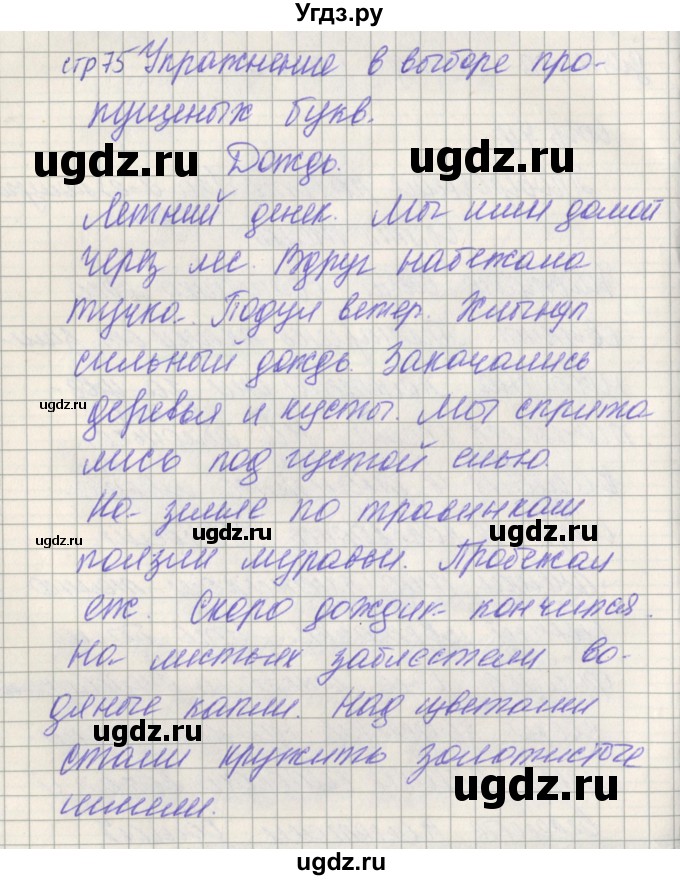 Угдз.ру
стр 75 Упражнение в выборе про-
пущеных букв.
ugdz.ru Дождь. ugdz.ru
Летний денек. Мы шли домой
через лес. Вдруг набежала
тучка. Подул ветер. Хлынул
сильный дождь. Закачались
ugdz.ru
деревья и кусты. Мы спрята
лись под густой елью.
На земле по травинкам
ugdz.ru ugdz.ru ugdz.ru
ползли муравьи. Пробежал
еж. Скоро дождик кончился.
На листьях заблестели во-
дяные капли. Над цветами
ugdz.ru
стали кружить золотистые
ugdz.ru
шмели.
ugdz.ru